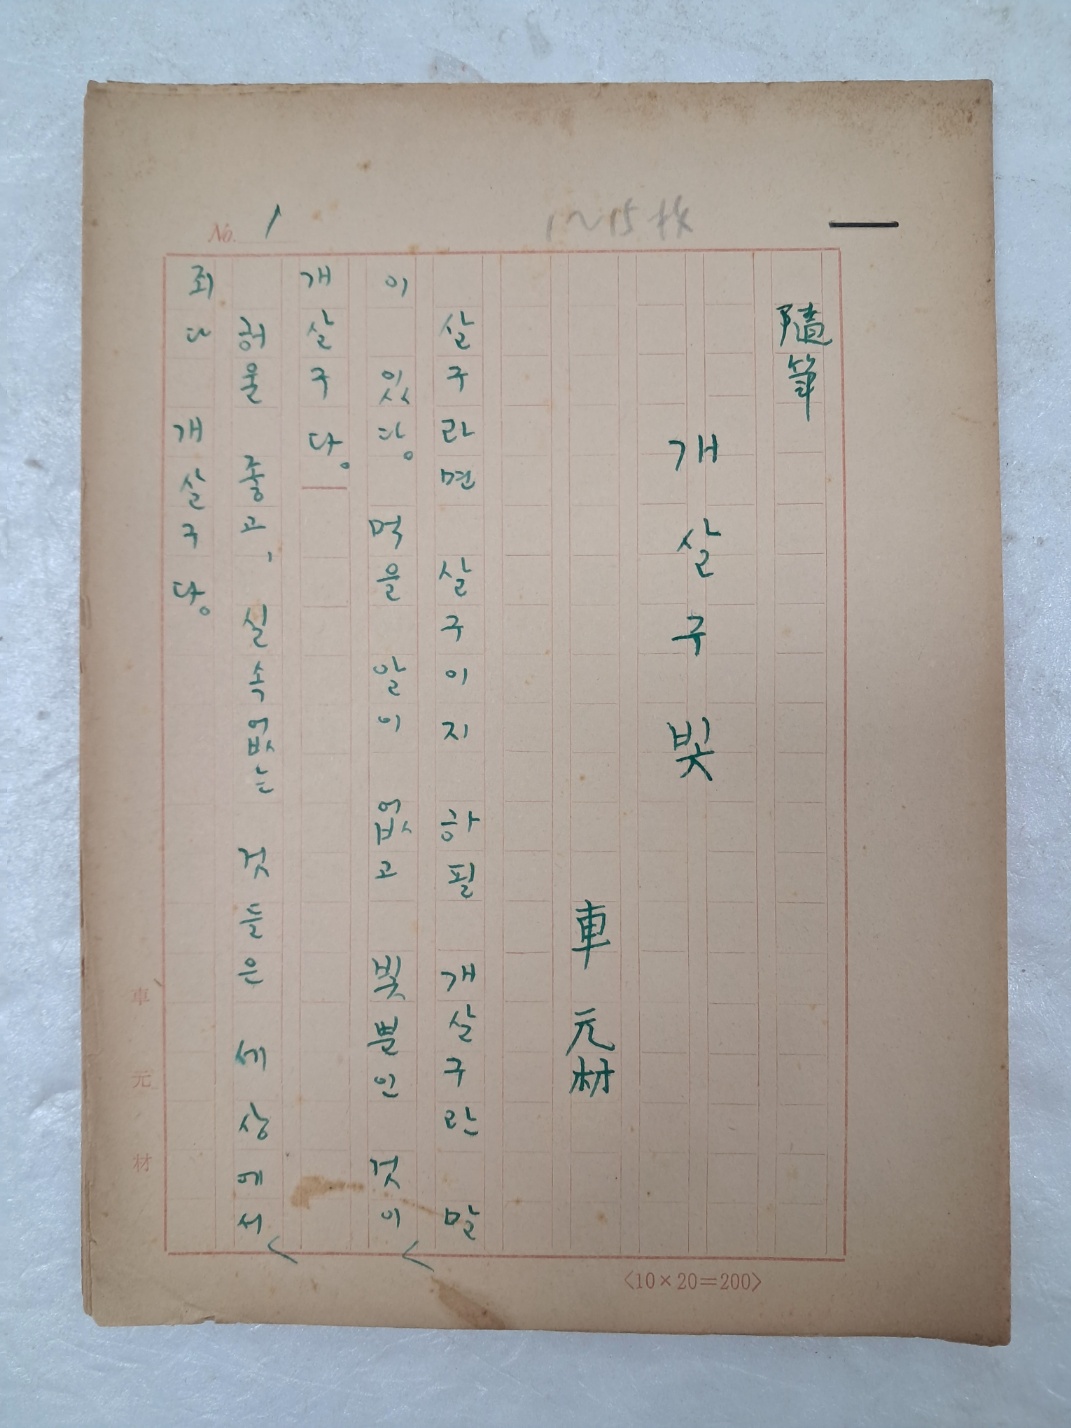 No. 1
1~15枚
隨筆
개살구빛
車元材
살구라면 살구이지 하필 개살구란 말
이 있다. 먹을 알이 없고 빛뿐인 것이
개살구다.
허울 좋고, 실속없는 것들은 세상에서
죄다 개살구다.
車元材
<10×20=200>